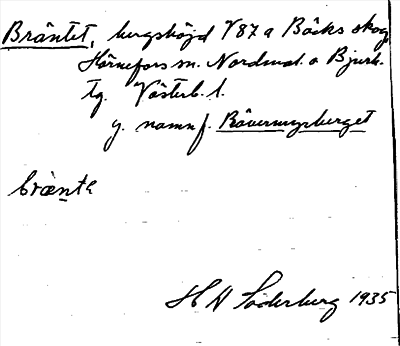 Bräntet, bergshöjd V87 a Bäcks skog
Hörnefors sn. Nordmal. o Bjurh.
tg. Västerb. l.
y. namn f. Räveningsberget
bræntɐ
H N Söderberg 1935